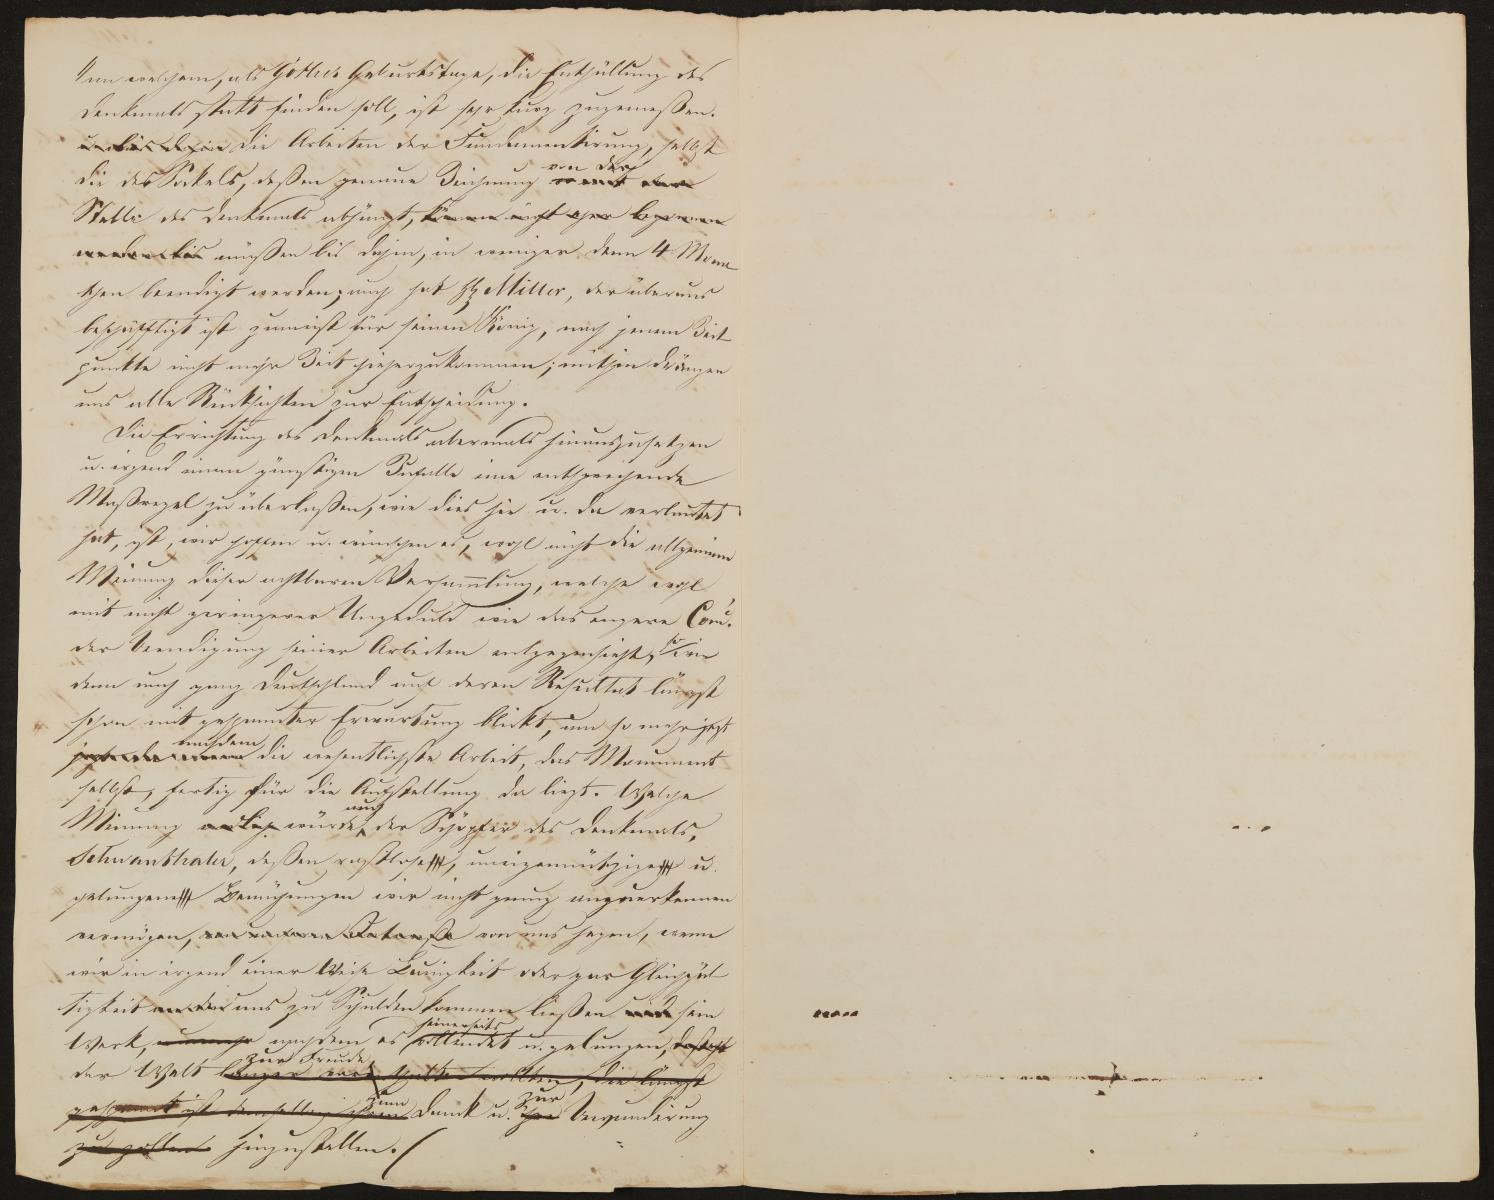 An welchem, als Göthes Geburtstage, die Enthüllung des
Denkmals statt finden soll, ist sehr kurz zugemeßen.
u. bis dahin die Arbeiten der Fundamentirung, selbst
die des Sockels, deßen genaue Zeichnung von der
Stelle des Denkmals abhängt, können nicht eher begonnen
werden bis müßen bis dahin, in weniger denn 4 Mona
then beendigt werden; auch hat H. Miller, der überaus
beschäftigt ist zumeist für seinen König, nach jenem Zeit
punkte nicht mehr Zeit hieherzukommen; mithin drängen
uns alle Rücksichten zur Entscheidung.
Die Errichtung des Denkmals abermals hinauszusetzen
u. irgend einem günstigen Zufalle eine entsprechende
Maßregel zu überlaßen, wie dies hie u. da verlautet
hat, ist, wir hoffen u. wünschen es, wohl nicht die allgemeine
Meinung dieser achtbaren Versammlung, welche wohl
mit nicht geringerer Ungeduld wie das engere Com.
der Beendigung seiner Arbeiten entgegensieht, so wie
denn auch ganz Deutschland auf deren Resultat längst
schon mit gespannter Erwartung blickt, um so mehr jetzt
nachdem die wesentlichste Arbeit, das Monument
selbst, fertig für die Aufstellung da liegt. Welche
Meinung würde auch der Schöpfer des Denkmals,
Schwanthaler, deßen rastlose, uneigennützige u.
gelungene Bemühungen wir nicht genug anzuerkennen
vermögen, von uns hegen, wenn
wir in irgend einer Weise Lauigkeit oder gar Gleichgül
tigkeit uns zu Schulden kommen ließen sein
Werk, nachdem es seinerseits vollendet u. gelungen,
der Welt zur Freude
zum Dank u. zur Bewunderung
hinzustellen.